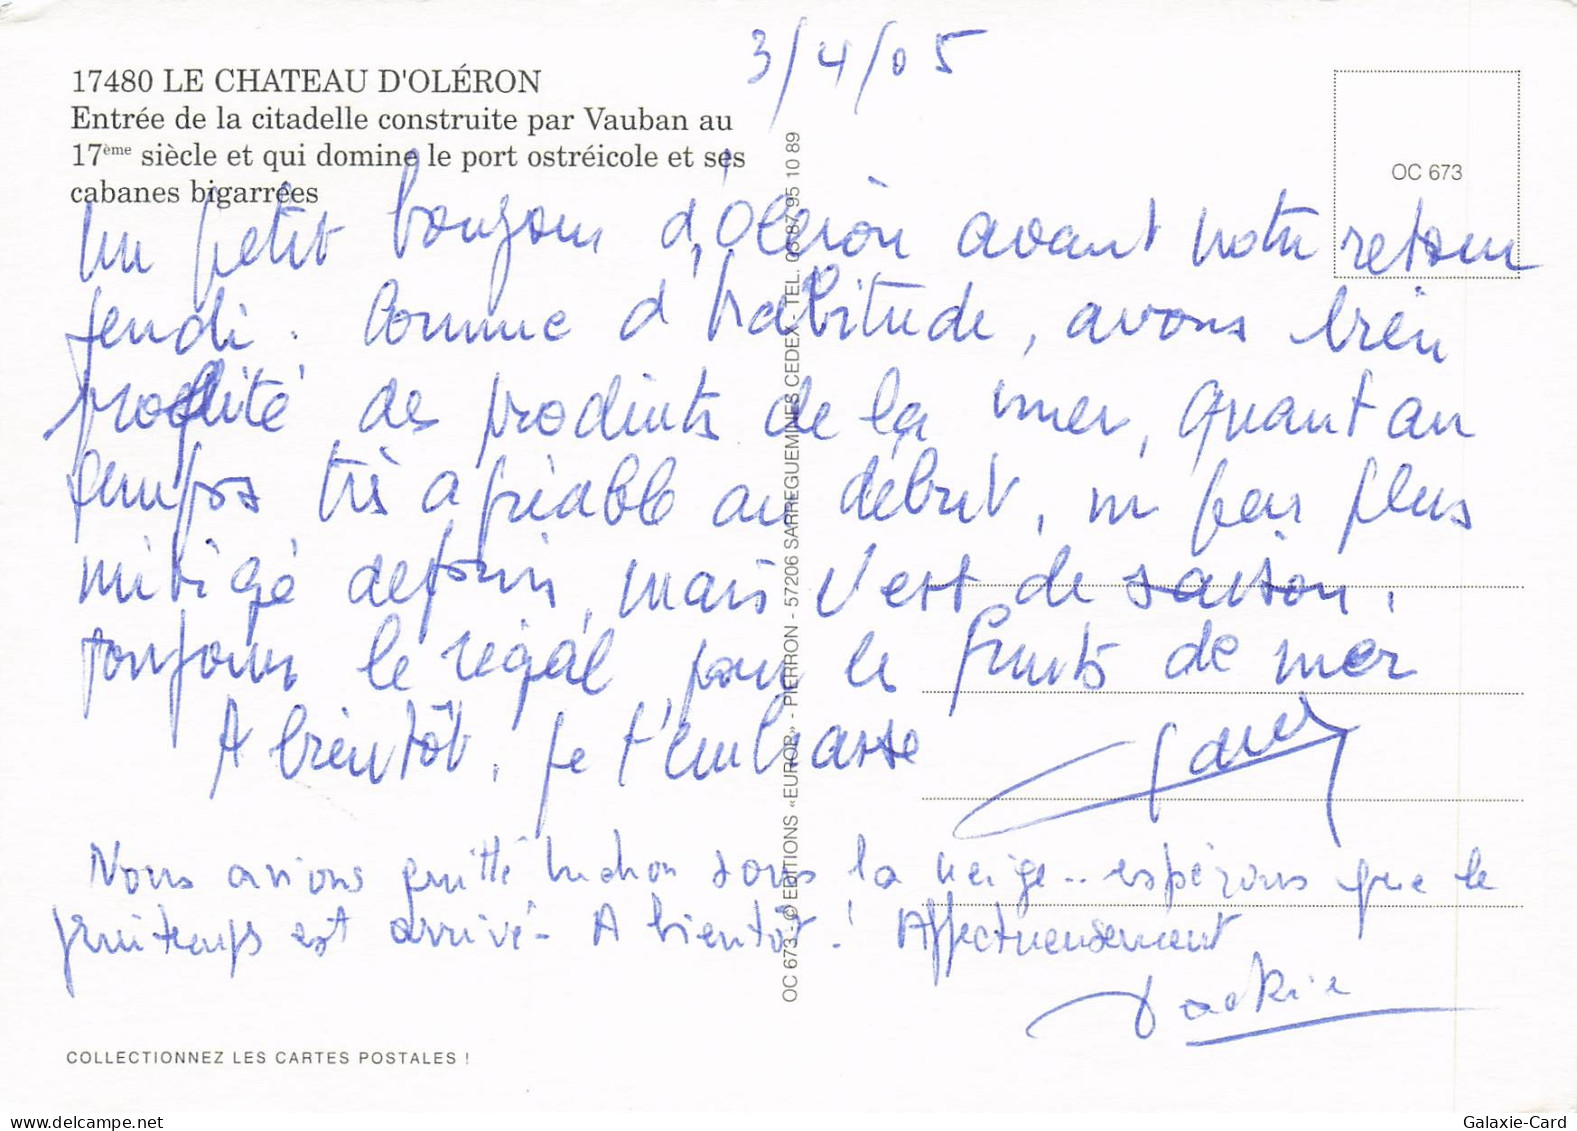 3/4/05
17480 LE CHATEAU D'OLÉRON
Entrée de la citadelle construite par Vauban au
17ème siècle et qui domine le port ostréicole et ses
cabanes bigarrées
OC 673
Un petit bonjour d'Oléron avant notre retour
jeudi. Comme d'habitude, avons bien
profité des produits de la mer, quant au
temps très agréable au début, un peu plus
mitigé depuis, mais c'est de saison.
toujours le régal pour les fruits de mer
A bientôt, je t'embrasse
Nous avions quitté Luchon sous la neige.. espérons que le
printemps est arrivé - A bientôt ! Affectueusement
Jackie
OC 673 - © EDITIONS «EUROP» - PIERRON - 57206 SARREGUEMINES CEDEX - TEL. 03 87 95 10 89
COLLECTIONNEZ LES CARTES POSTALES !
Galaxie-Card